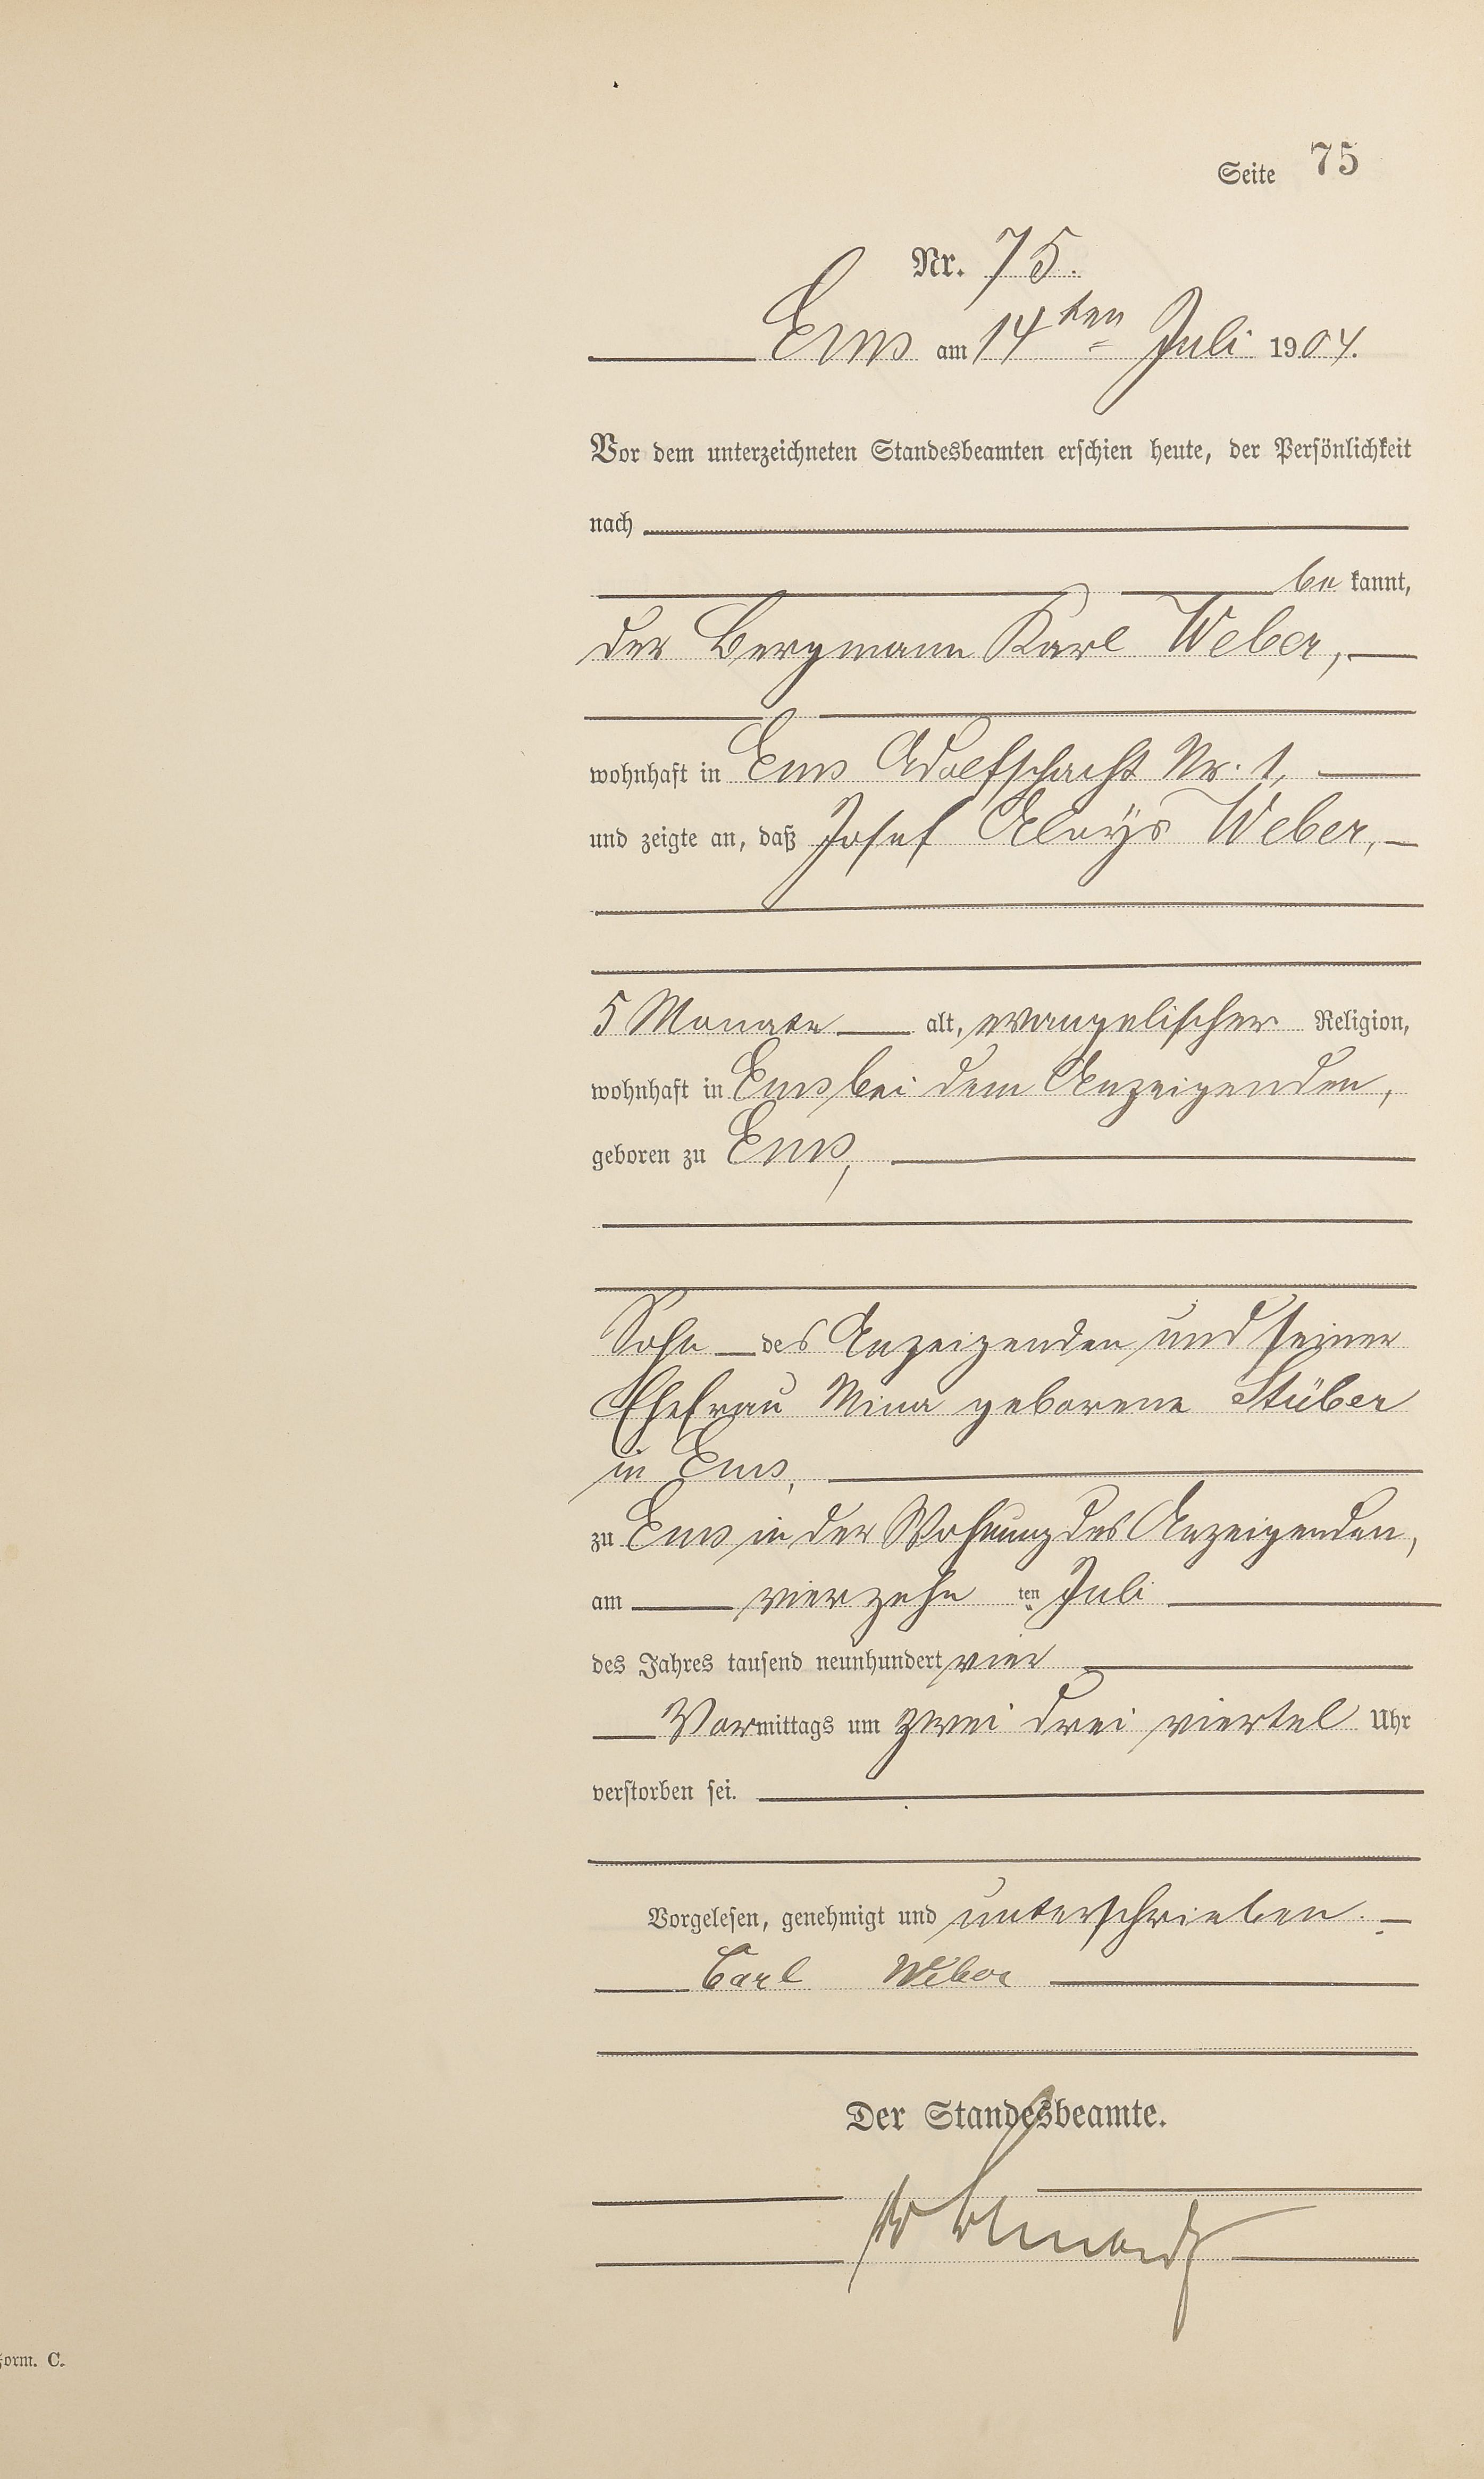 Seite 75
Nr. 75.
Ems am 14ten Juli 1904.
Vor dem unterzeichneten Standesbeamten erschien heute, der Persönlichkeit
nach
be kannt,
der Bergmann Karl Weber,
wohnhaft in Ems Adolfschacht Nr. 1,
und zeigte an, daß Josef Aloys Weber,
5 Monate alt, evangelischer Religion,
wohnhaft in Ems bei dem Anzeigenden,
geboren zu Ems,
Sohn des Anzeigenden und seiner
Ehefrau Mina geborene Stüber
in Ems,
zu Ems in der Wohnung des Anzeigenden,
am vierzehn ten Juli
des Jahres tausend neunhundert vier
Vormittags um zwei drei viertel Uhr
verstorben sei.
Vorgelesen, genehmigt und unterschrieben.
Carl Weber
Der Standesbeamte.
Form. C.